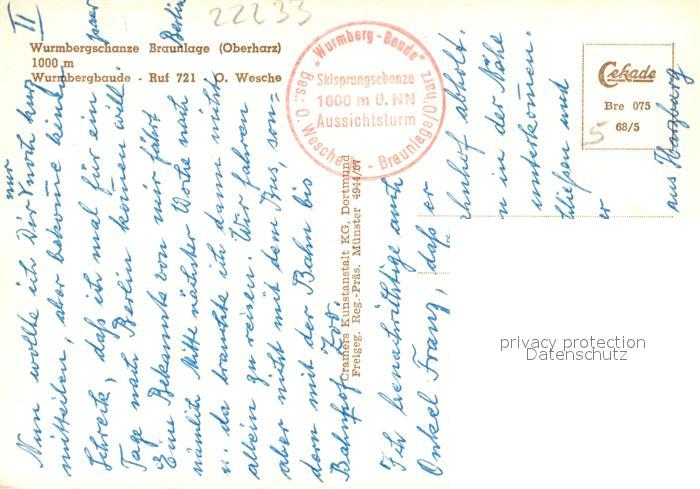 22233
Wurmbergschanze Braunlage (Oberharz)
1000 m
Wurmbergbaude - Ruf 721 O. Wesche
"Wurmberg-Baude"
Skisprungschanze
1000 m ü. NN
Aussichtsturm
Bes.: O. Wesche - Braunlage/O'harz
Cekade
Bre 075
68/5
5
Cramers Kunstanstalt KG, Dortmund
Freigeg. Reg.-Präs. Münster 4944/57
II
Nun wollte ich Dir noch kurz
nur
mitteilen, aber bekomme keinen
Schreck, daß ich mal für ein paar
Tage nach Berlin kommen will.
Eine Bekannte von mir fährt
nämlich Mitte nächster Woche nach Berlin
u. da brauchte ich dann nicht
allein zu reisen. Wir fahren
aber nicht mit dem Bus, son=
dern mit der Bahn bis
Bahnhof Zoo.
Ich benachrichtige auch
Onkel Franz, daß er
hnhof abholt.
n in der Nähe
unterkommen.
ließen und
er
aus Harzburg
privacy protection
Datenschutz